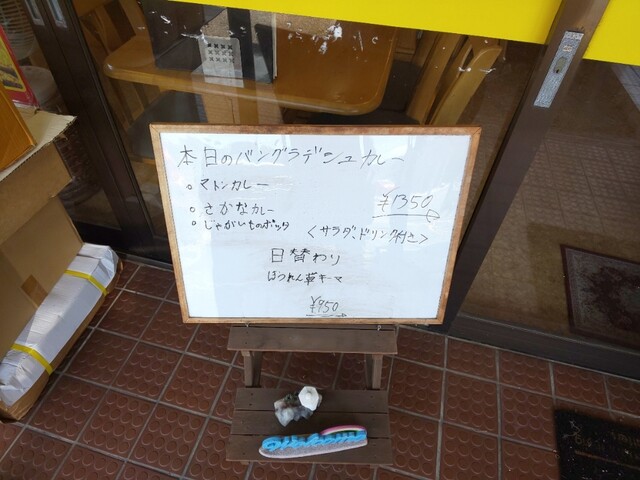 本日のバングラデシュカレー
○ マトンカレー
○ さかなカレー
○ じゃがいものボッタ
¥1350
<サラダ、ドリンク付き>
日替わり
ほうれん草キーマ
¥950